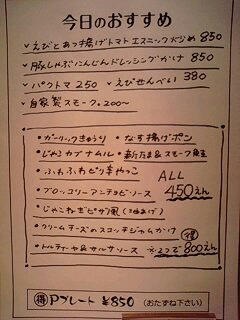 今日のおすすめ
✓えびとあつ揚げトマトエスニック炒め 850
✓豚しゃぶにんじんドレッシングかけ 850
✓パクトマ 250 ✓えびせんべい 380
✓自家製スモーク 200〜
・ガーリックきゅうり ・なす揚げポン
・じゃこカブナムル ・新たま&スモーク
・ふわふわピリ辛やっこ ALL
・ブロッコリーアンチョビソース 450えん
・じゃこねぎピザ風(油あげ)
・クリームチーズのスコッチジャムかけ 得
・トルティーヤ&サルサソース ※2つで800えん
得 Pプレート ¥850 (おたずね下さい)